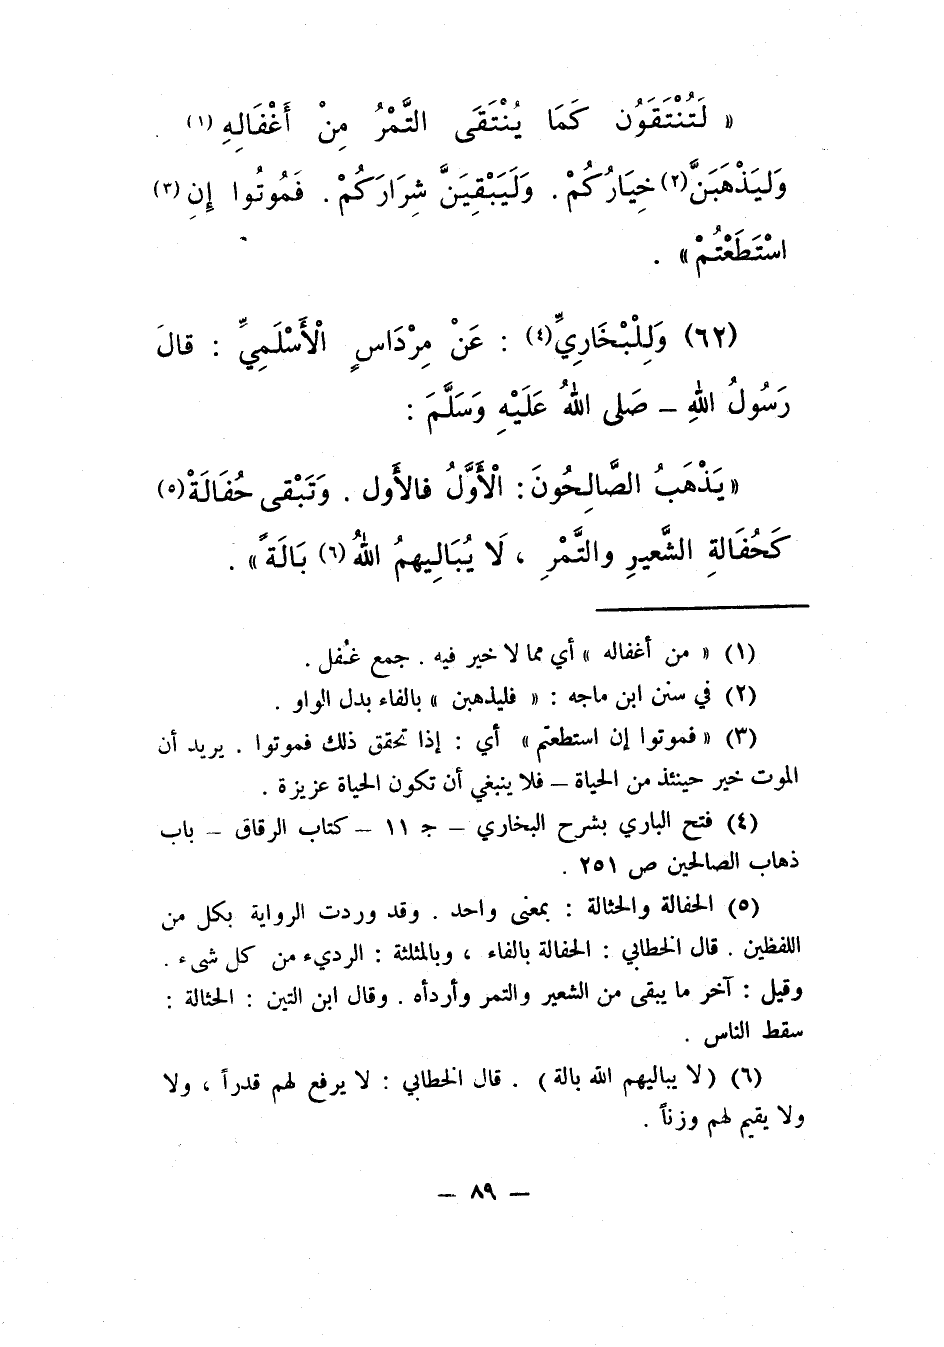 « لَتُنْتَقَوُن كَمَا يُنْتَقَى التَّمْرُ مِنْ أَغْفَالِهِ (١)
وَليَذْهَبَنَّ(٢) خِيَارُكُمْ . وَلَيَبْقِيَنَّ شِرَارَكُمْ . فَمُوتُوا إِنِ (٣)
اسْتَطَعْتُمْ » .
(٦٢) وَلِلْبْخَارِيِّ(٤) : عَنْ مِرْدَاسٍ الْأَسْلَمِيِّ : قالَ
رَسُولُ اللهِ – صَلى اللهُ عَلَيْهِ وَسَلَّمَ :
« يَذْهَبُ الصَّالِحُونَ : الْأَوَّلُ فالأَول . وَتَبْقى حُفَالَةْ(٥)
كَحُفَالةِ الشَّعيرِ والتَّمْرِ ، لَا يُبَالِيهمُ اللهُ(٦) بَالَةً » .
(١) « من أغفاله » أي مما لا خير فيه . جمع غُفل .
(٢) في سنن ابن ماجه : « فليذهبن » بالفاء بدل الواو .
(٣) « فموتوا إن استطعتم » أي : إذا تحقق ذلك فموتوا . يريد أن
الموت خير حينئذ من الحياة – فلا ينبغي أن تكون الحياة عزيزة .
(٤) فتح الباري بشرح البخاري – جـ ١١ – كتاب الرقاق – باب
ذهاب الصالحين ص ٢٥١ .
(٥) الحفالة والحثالة : بمعنى واحد . وقد وردت الرواية بكل من
اللفظين . قال الخطابي : الحفالة بالفاء ، وبالمثلثة : الرديء من كل شىء .
وقيل : آخر ما يبقى من الشعير والتمر وأردأه . وقال ابن التين : الحثالة :
سقط الناس .
(٦) ( لا يباليهم الله بالة ) . قال الخطابي : لا يرفع لهم قدراً ، ولا
ولا يقيم لهم وزناً .
– ٨٩ –